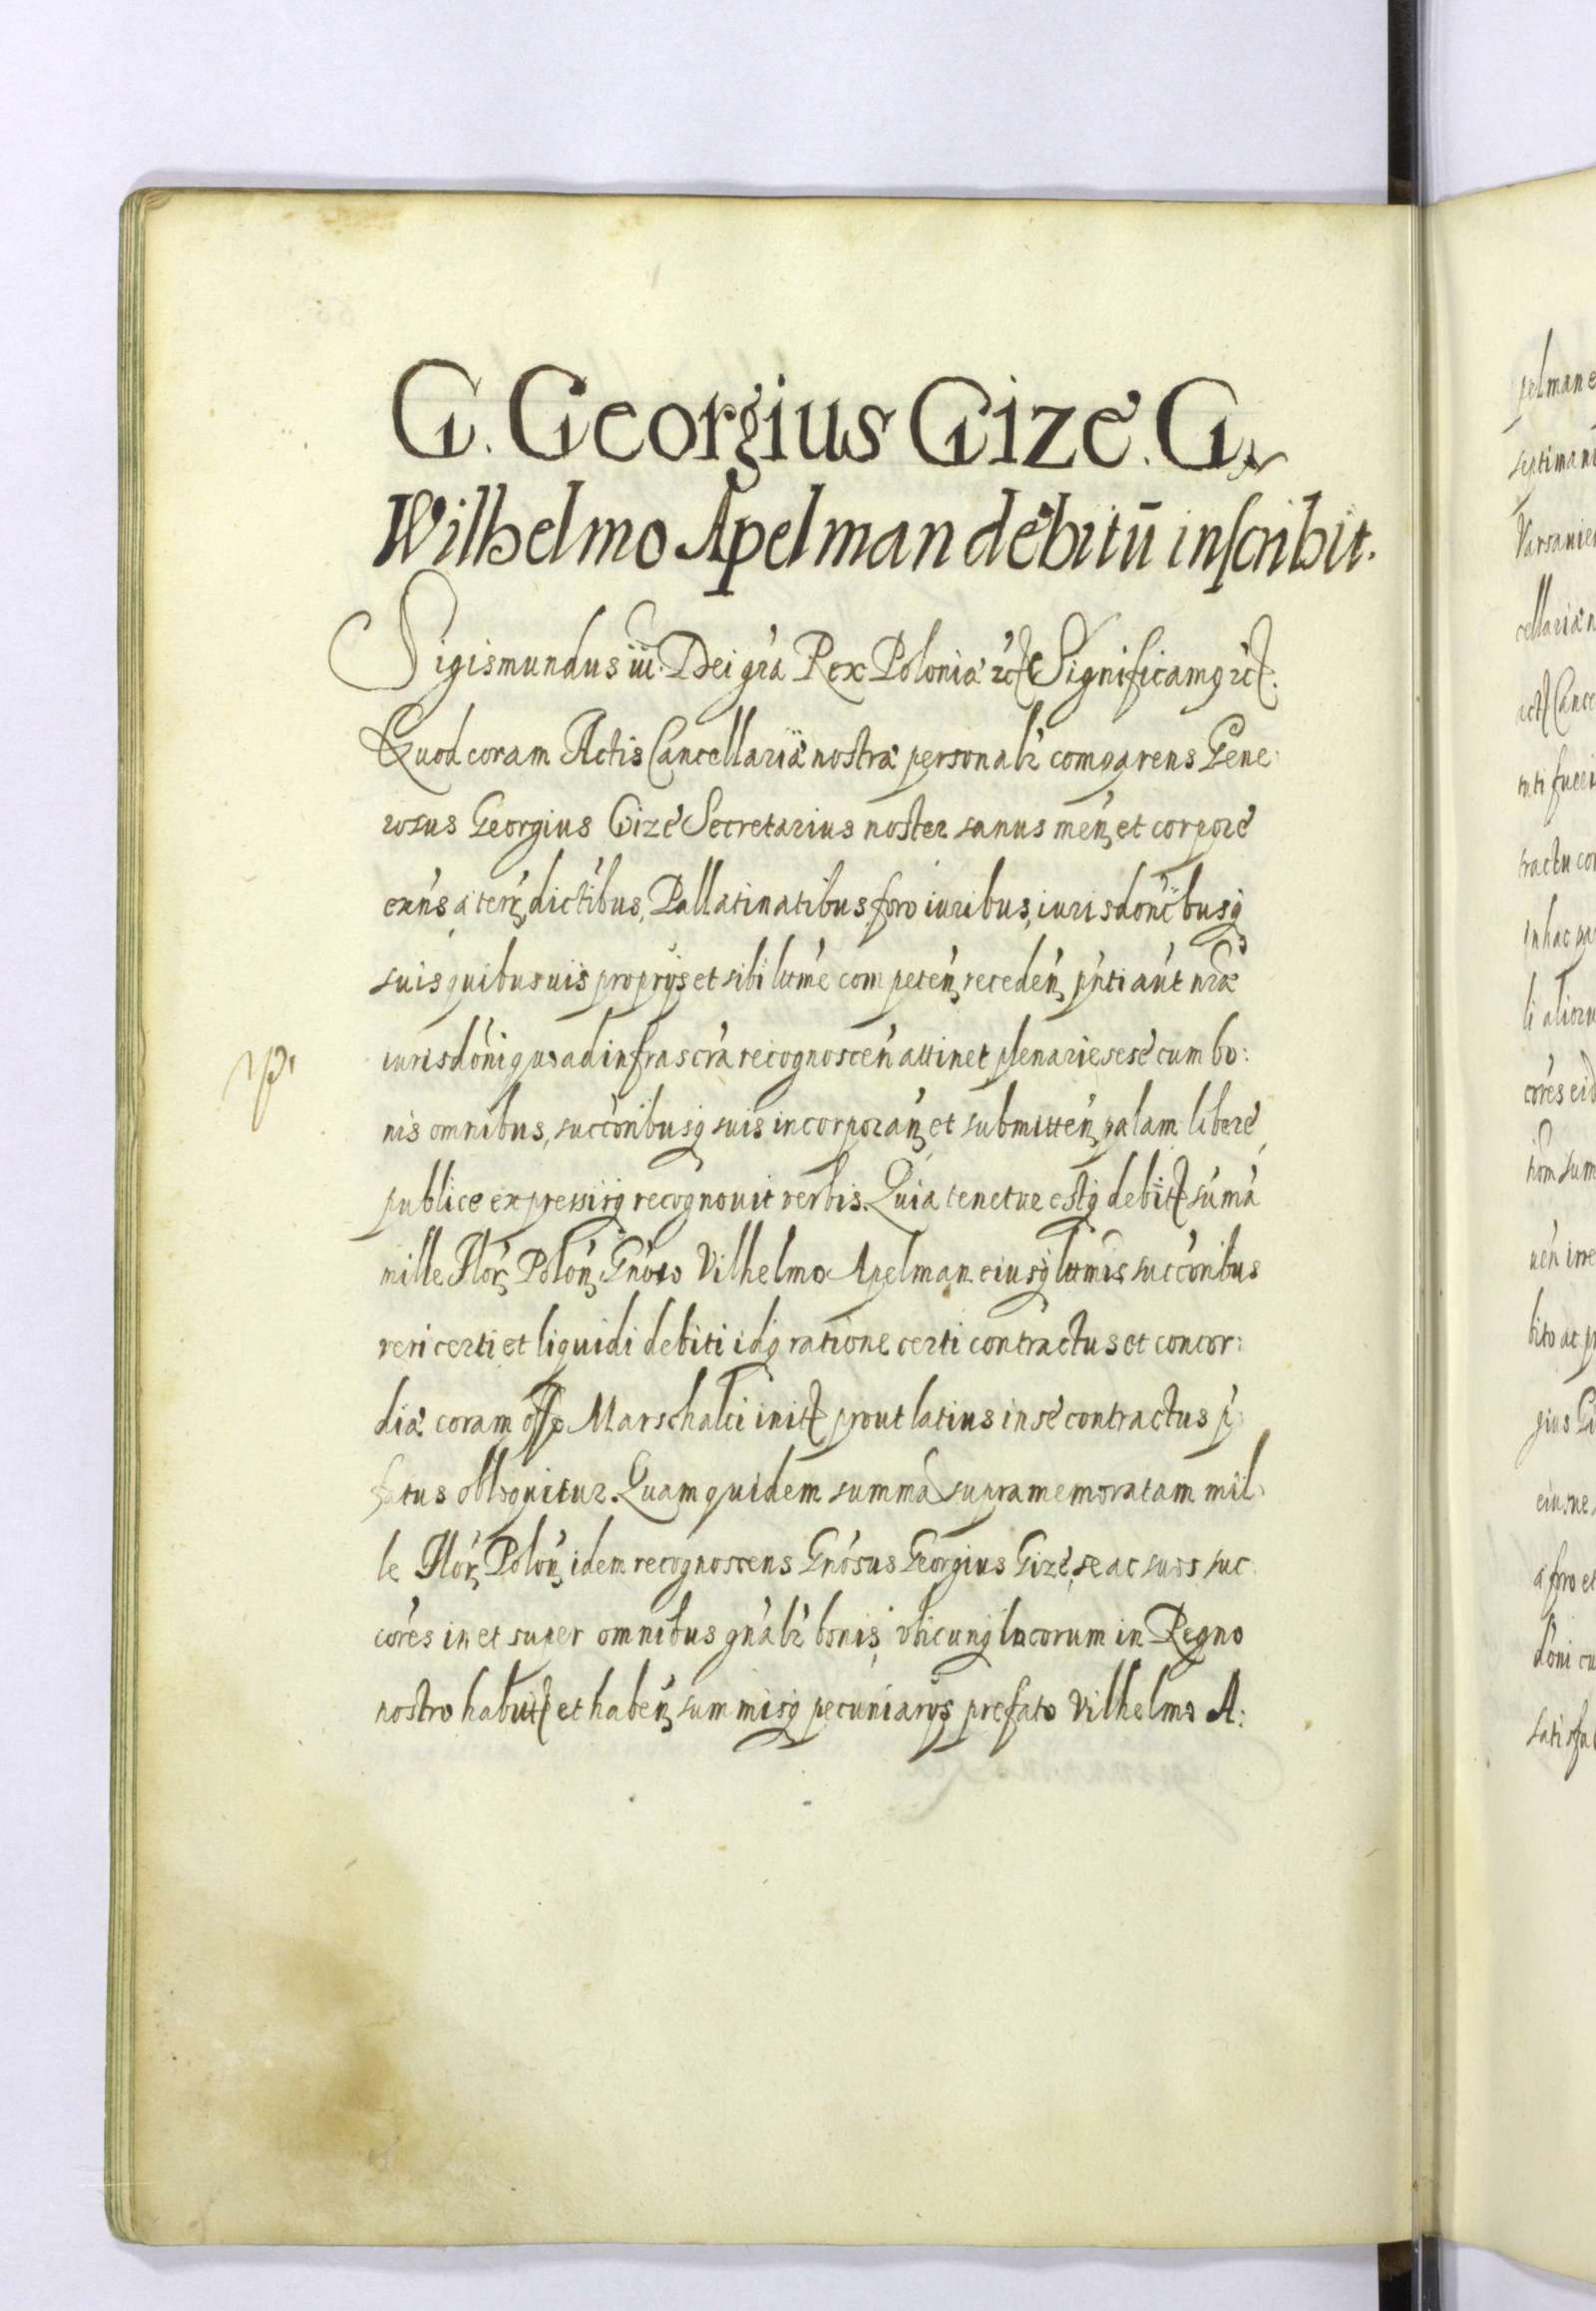 G. Georgius Gize. G.
Wilhelmo Apelman debitū inscribit.
Sigismundus iii. Dei grā Rex Poloniæ etc. Significamq etc.
Quod coram Actis Cancellariæ nostræ personalr comparens Gene:
rosus Georgius Gize Secretarius noster sanus men, et corpore
exñs, a terr, dictibus, Pallatinatibus, foro iuribus, iurisdoñibusq
suis quibusuis proprijs et sibi lttme competeñ, recedeñ, pñti aút nræ
iurisdoñi quoad infrascrā recognosceñ attinet plenarie sese cum bo:
nis omnibus, succoribusq suis incorporañ, et submitteñ, palam libere,
publice expressisq recognouit verbis. Quia tenetur estq debit sumā
mille Flor, Poloñ, Gñoso Vilhelmo Apelman eiusq lttmis succoribus
veri certi et liquidi debiti idq ratione certi contractus et concor:
diæ coram offo Marschalci init prout latius in se contractus p:
fatus obloquitur. Quam quidem summā supramemoratam mil:
le Flor, Poloñ, idem recognoscens Gñosus Georgius Gize, se ac suos suc:
cores in et super omnibus gñalr bonis, vbicunq locorum in Regno
nostro habit et habeñ, summisq pecuniarijs prefato Vilhelmo A:
pelman e
septimani
Varsauien
cellariæ n
Cance
fueri
tractu co
in hac pa
li alioru
cores eid
sum
ueñ irre
bito ac p
gius Gi
eiusue
a foro et
doni cu
satisfa